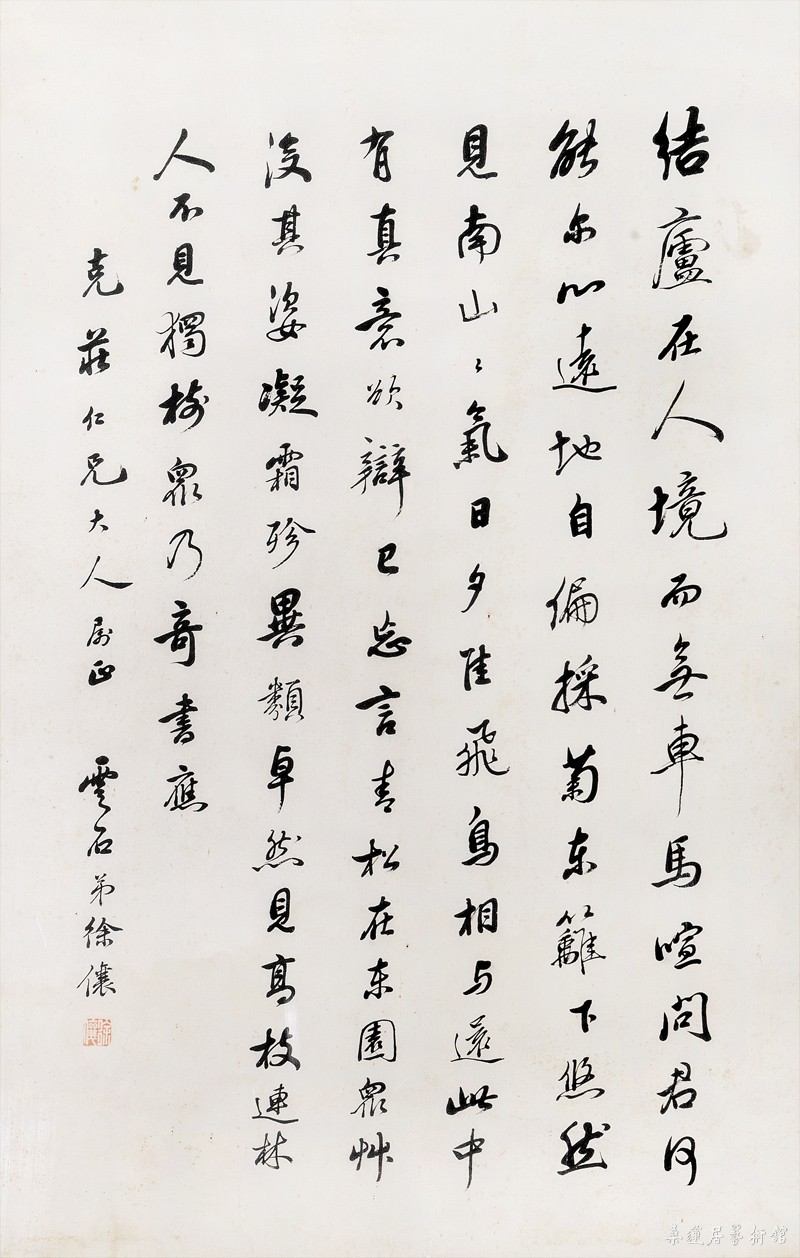 結廬在人境而無車馬喧問君何
能尔心遠地自偏採菊東籬下悠然
見南山〻氣日夕佳飛鳥相与還此中
有真意欲辯已忘言青松在東園眾艸
没其姿凝霜殄異類卓然見高枝連林
人不見獨樹眾乃奇書應
克莊仁兄大人屬正 雲石弟徐儴
蓮居藝術館